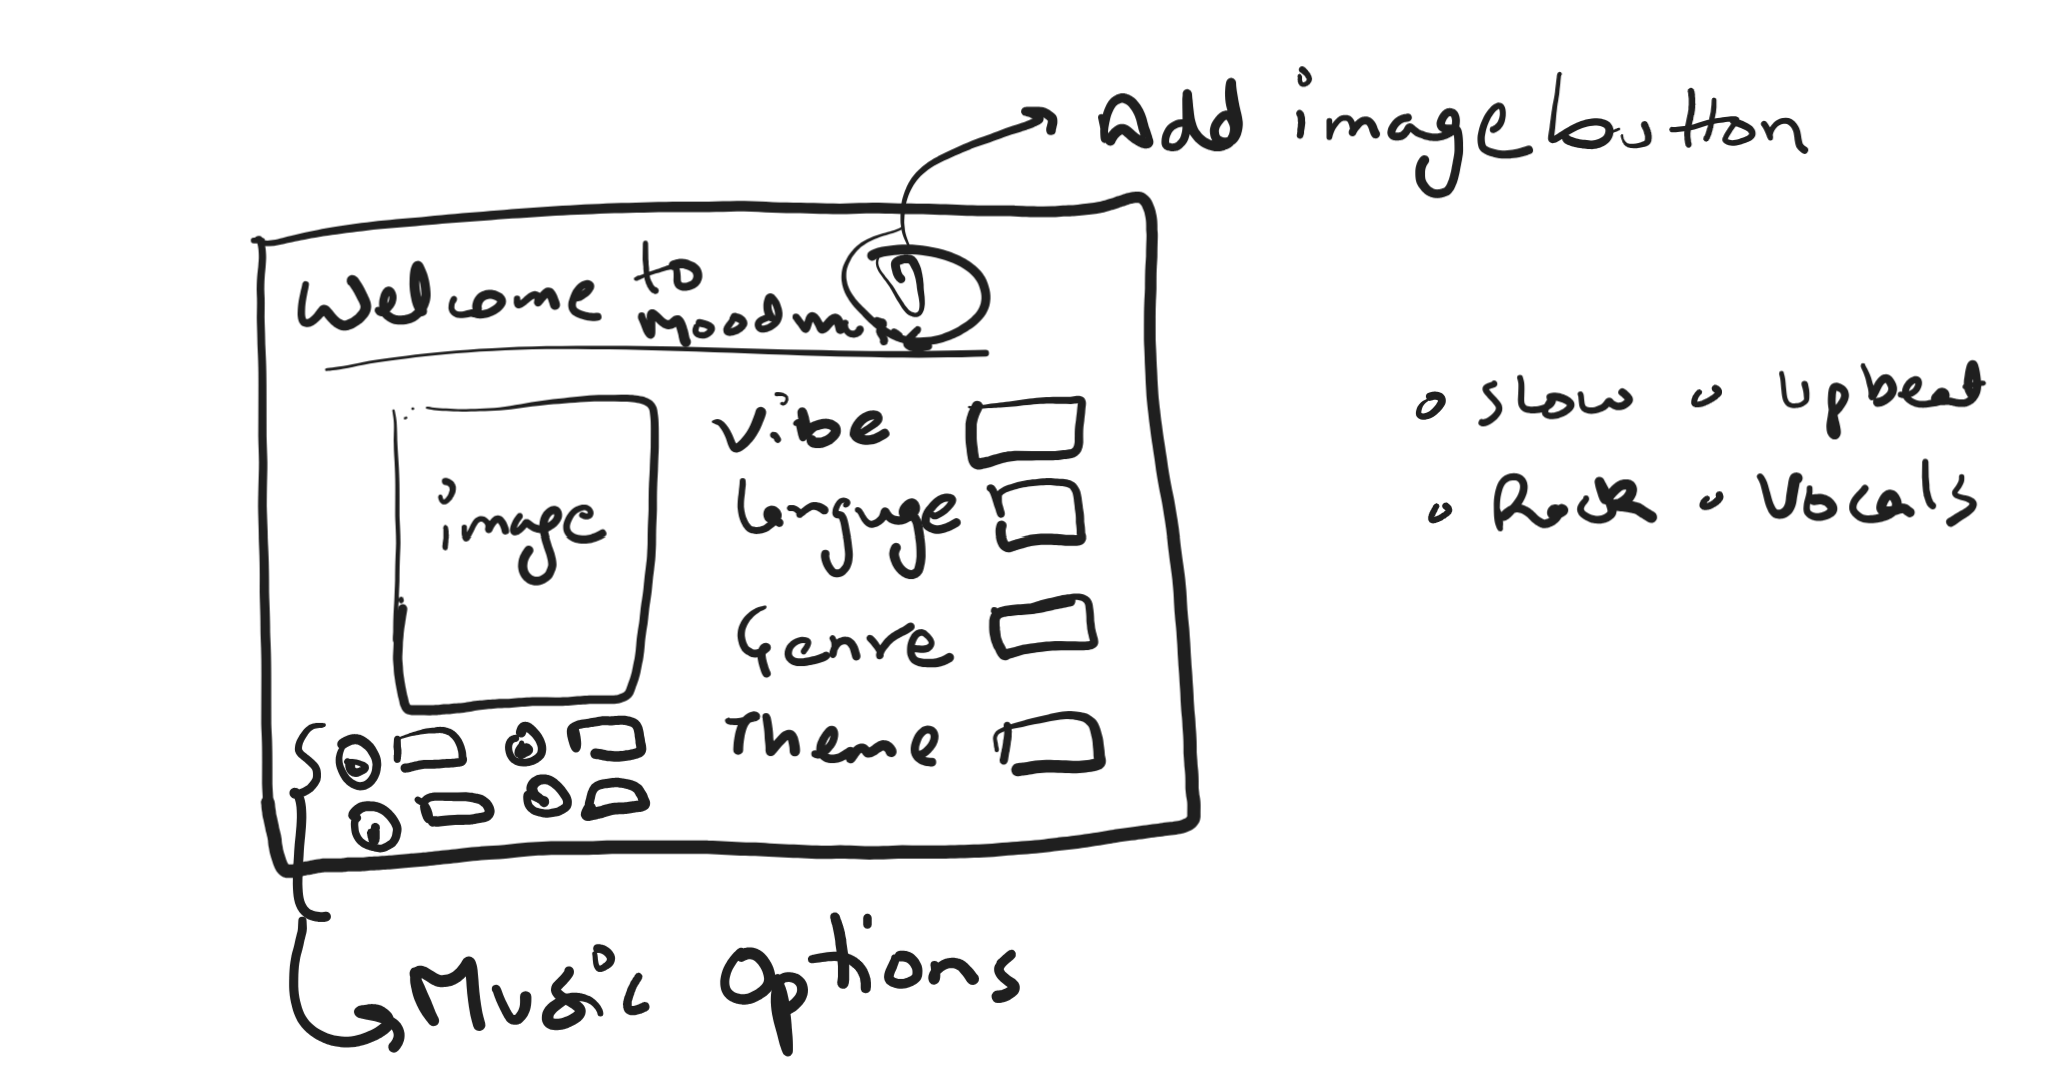 Add image button
Welcome to
moodmix
Vibe
Languge
image
Genre
Theme
Music Options
slow upbeat
Rock Vocals